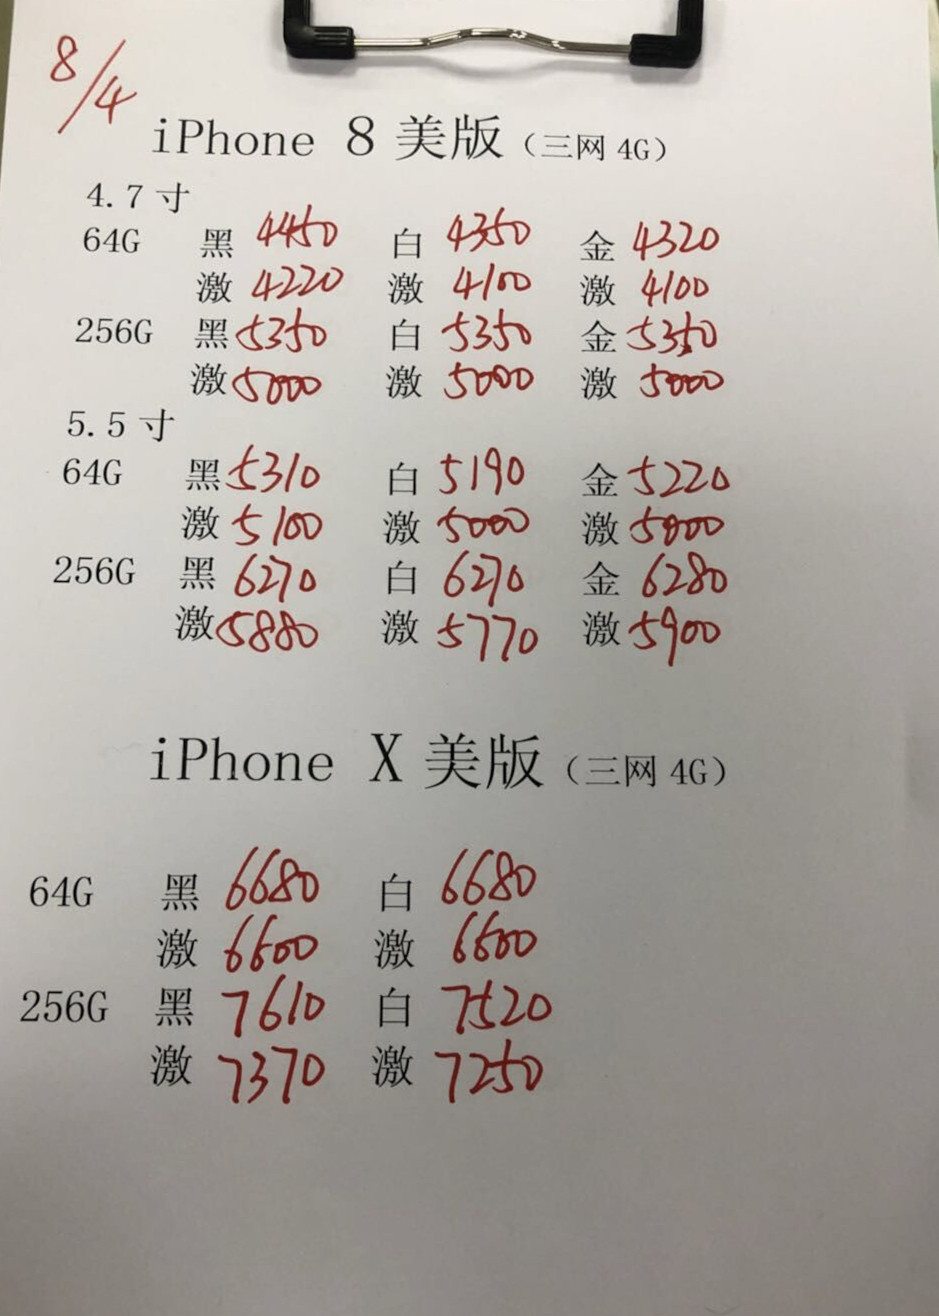 8/4
iPhone 8 美版（三网 4G）
4.7 寸
64G 黑 4450 白 4350 金 4320
激 4220 激 4100 激 4100
256G 黑 5350 白 5350 金 5350
激 5000 激 5000 激 5000
5.5 寸
64G 黑 5310 白 5190 金 5220
激 5100 激 5000 激 5000
256G 黑 6270 白 6270 金 6280
激 5880 激 5770 激 5900
iPhone X 美版（三网 4G）
64G 黑 6680 白 6680
激 6600 激 6600
256G 黑 7610 白 7520
激 7370 激 7250